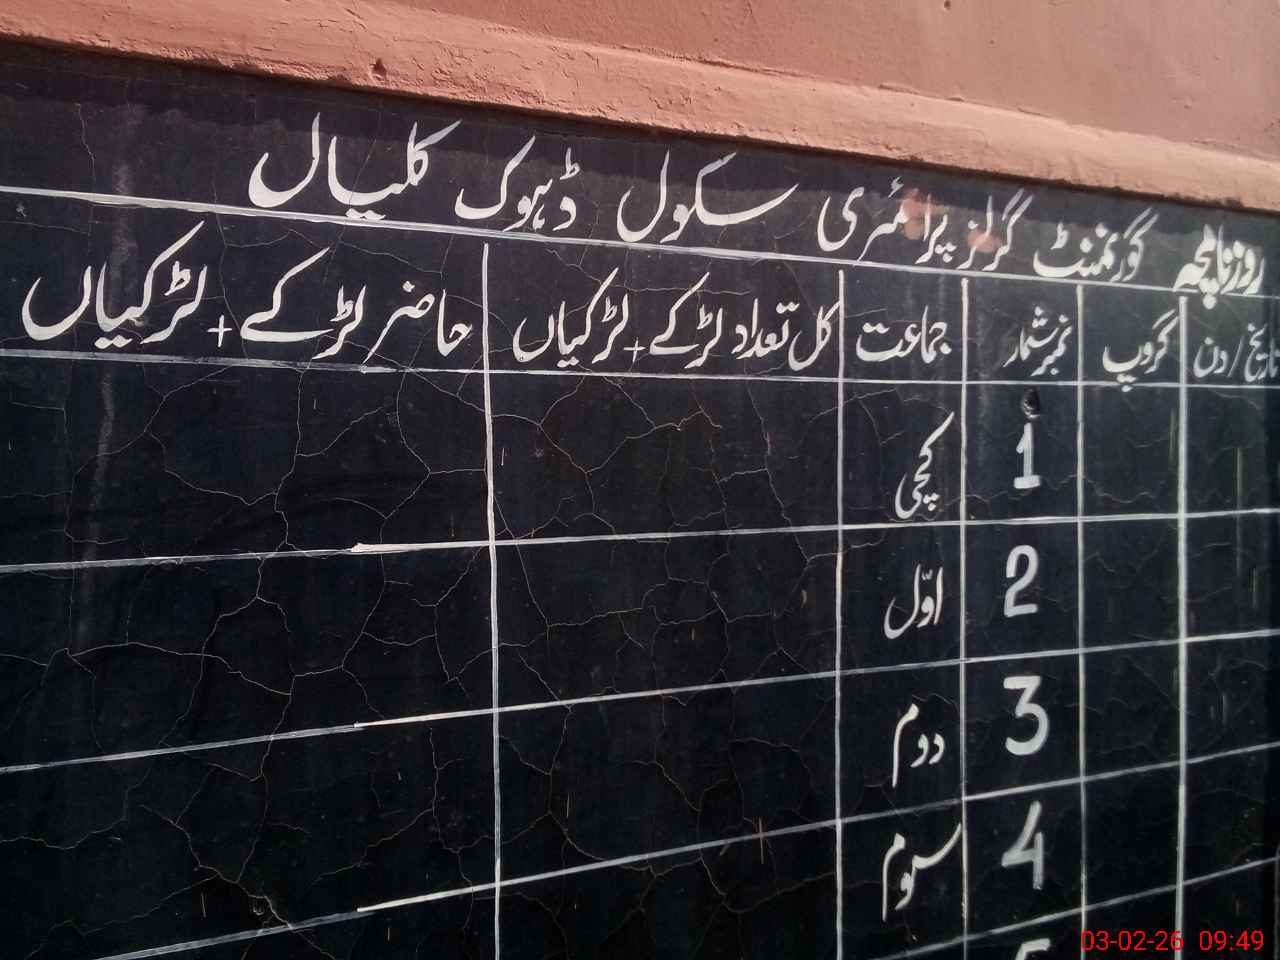 روزنامچہ گورنمنٹ گرلز پرائمری سکول ڈہوک کلیال
تاریخ/دن گروپ نمبر شمار جماعت کل تعداد لڑکے + لڑکیاں حاضر لڑکے + لڑکیاں
1 کچی
2 اوّل
3 دوم
4 سوم
03-02-26 09:49